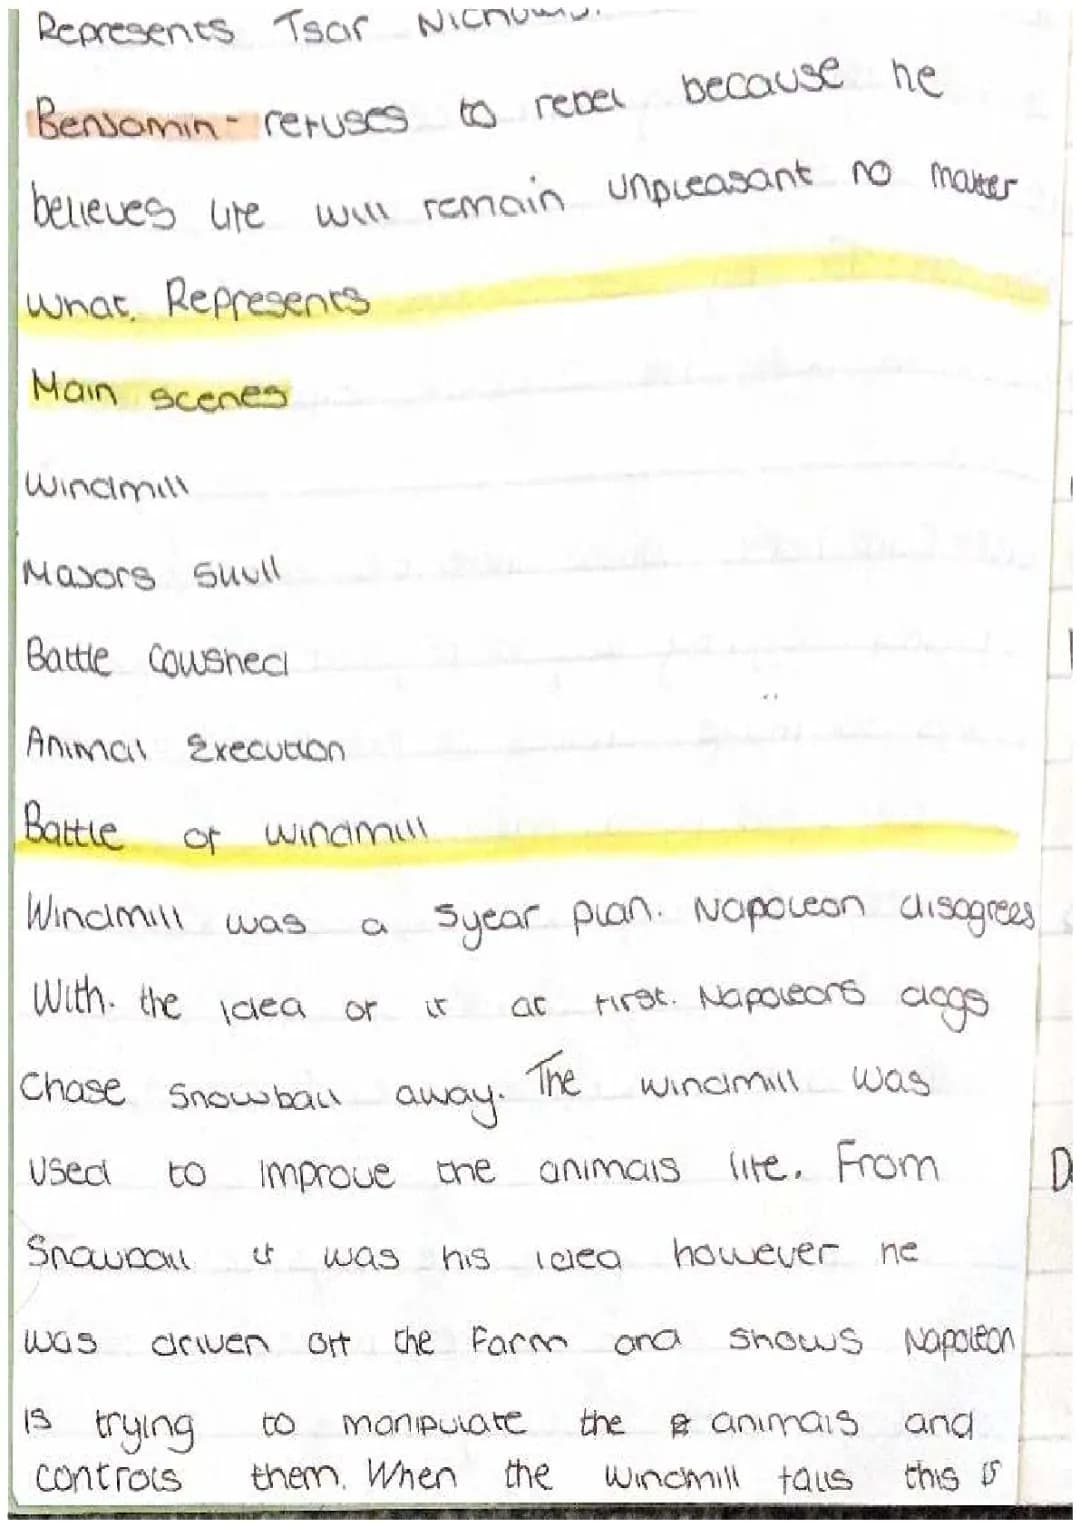 Represents Tsar Nicholas.
Benjamin- refuses to rebel because he
believes life will remain unpleasant no matter
what. Represents
Main scenes
Windmill
Majors skull
Battle Cowshed
Animal Execution
Battle of windmill
Windmill was a 5year plan. Napoleon disagrees
With. the idea of it at first. Napoleons dogs
Chase Snowball away. The windmill was
used to improve the animals life. From
Snowball it was his idea however he
was driven off the farm and shows Napoleon
is trying to manipulate the animals and
controls them. When the windmill falls this is